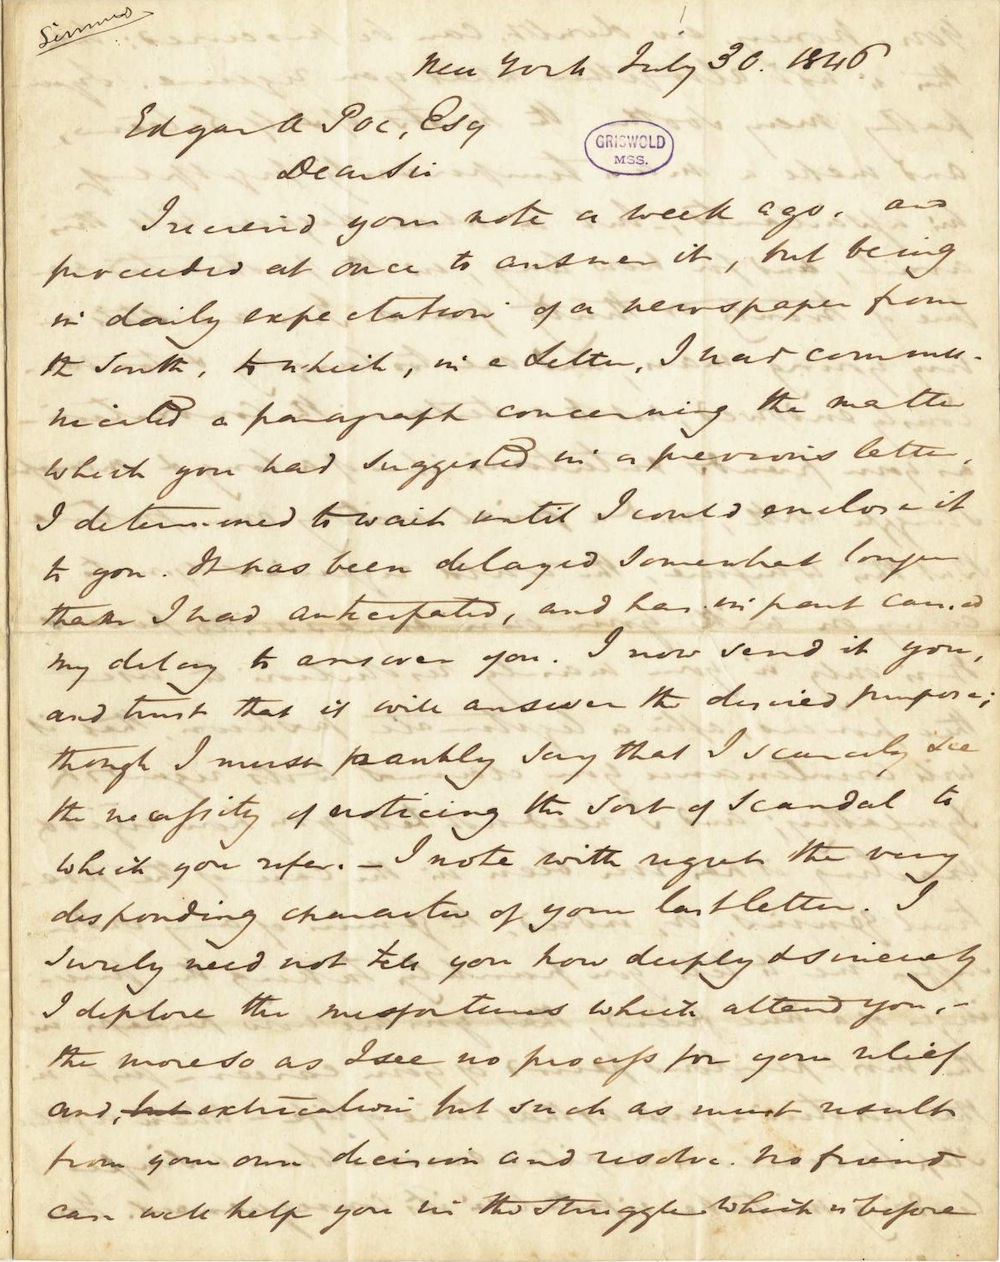 Simms
New York July 30. 1846
Edgar A Poe, Esq
GRISWOLD
MSS.
Dear Sir
I received your note a week ago, and
proceeded at once to answer it, but being
in daily expectation of a newspaper from
the South, to which, in a Letter, I had commu-
nicated a paragraph concerning the matter
which you had suggested in a previous letter,
I determined to wait until I could enclose it
to you. It has been delayed somewhat longer
than I had anticipated, and has in part caused
my delay to answer you. I now send it you,
and trust that it will answer the desired purpose;
though I must frankly say that I scarcely see
the necessity of noticing the sort of scandal to
which you refer. – I note with regret the very
desponding character of your last letter. I
surely need not tell you how deeply & sincerely
I deplore the misfortunes which attend you, –
the more so as I see no process for your relief
and, but extrication but such as must result
from your own decision and resolve. No friend
can well help you in the struggle which is before